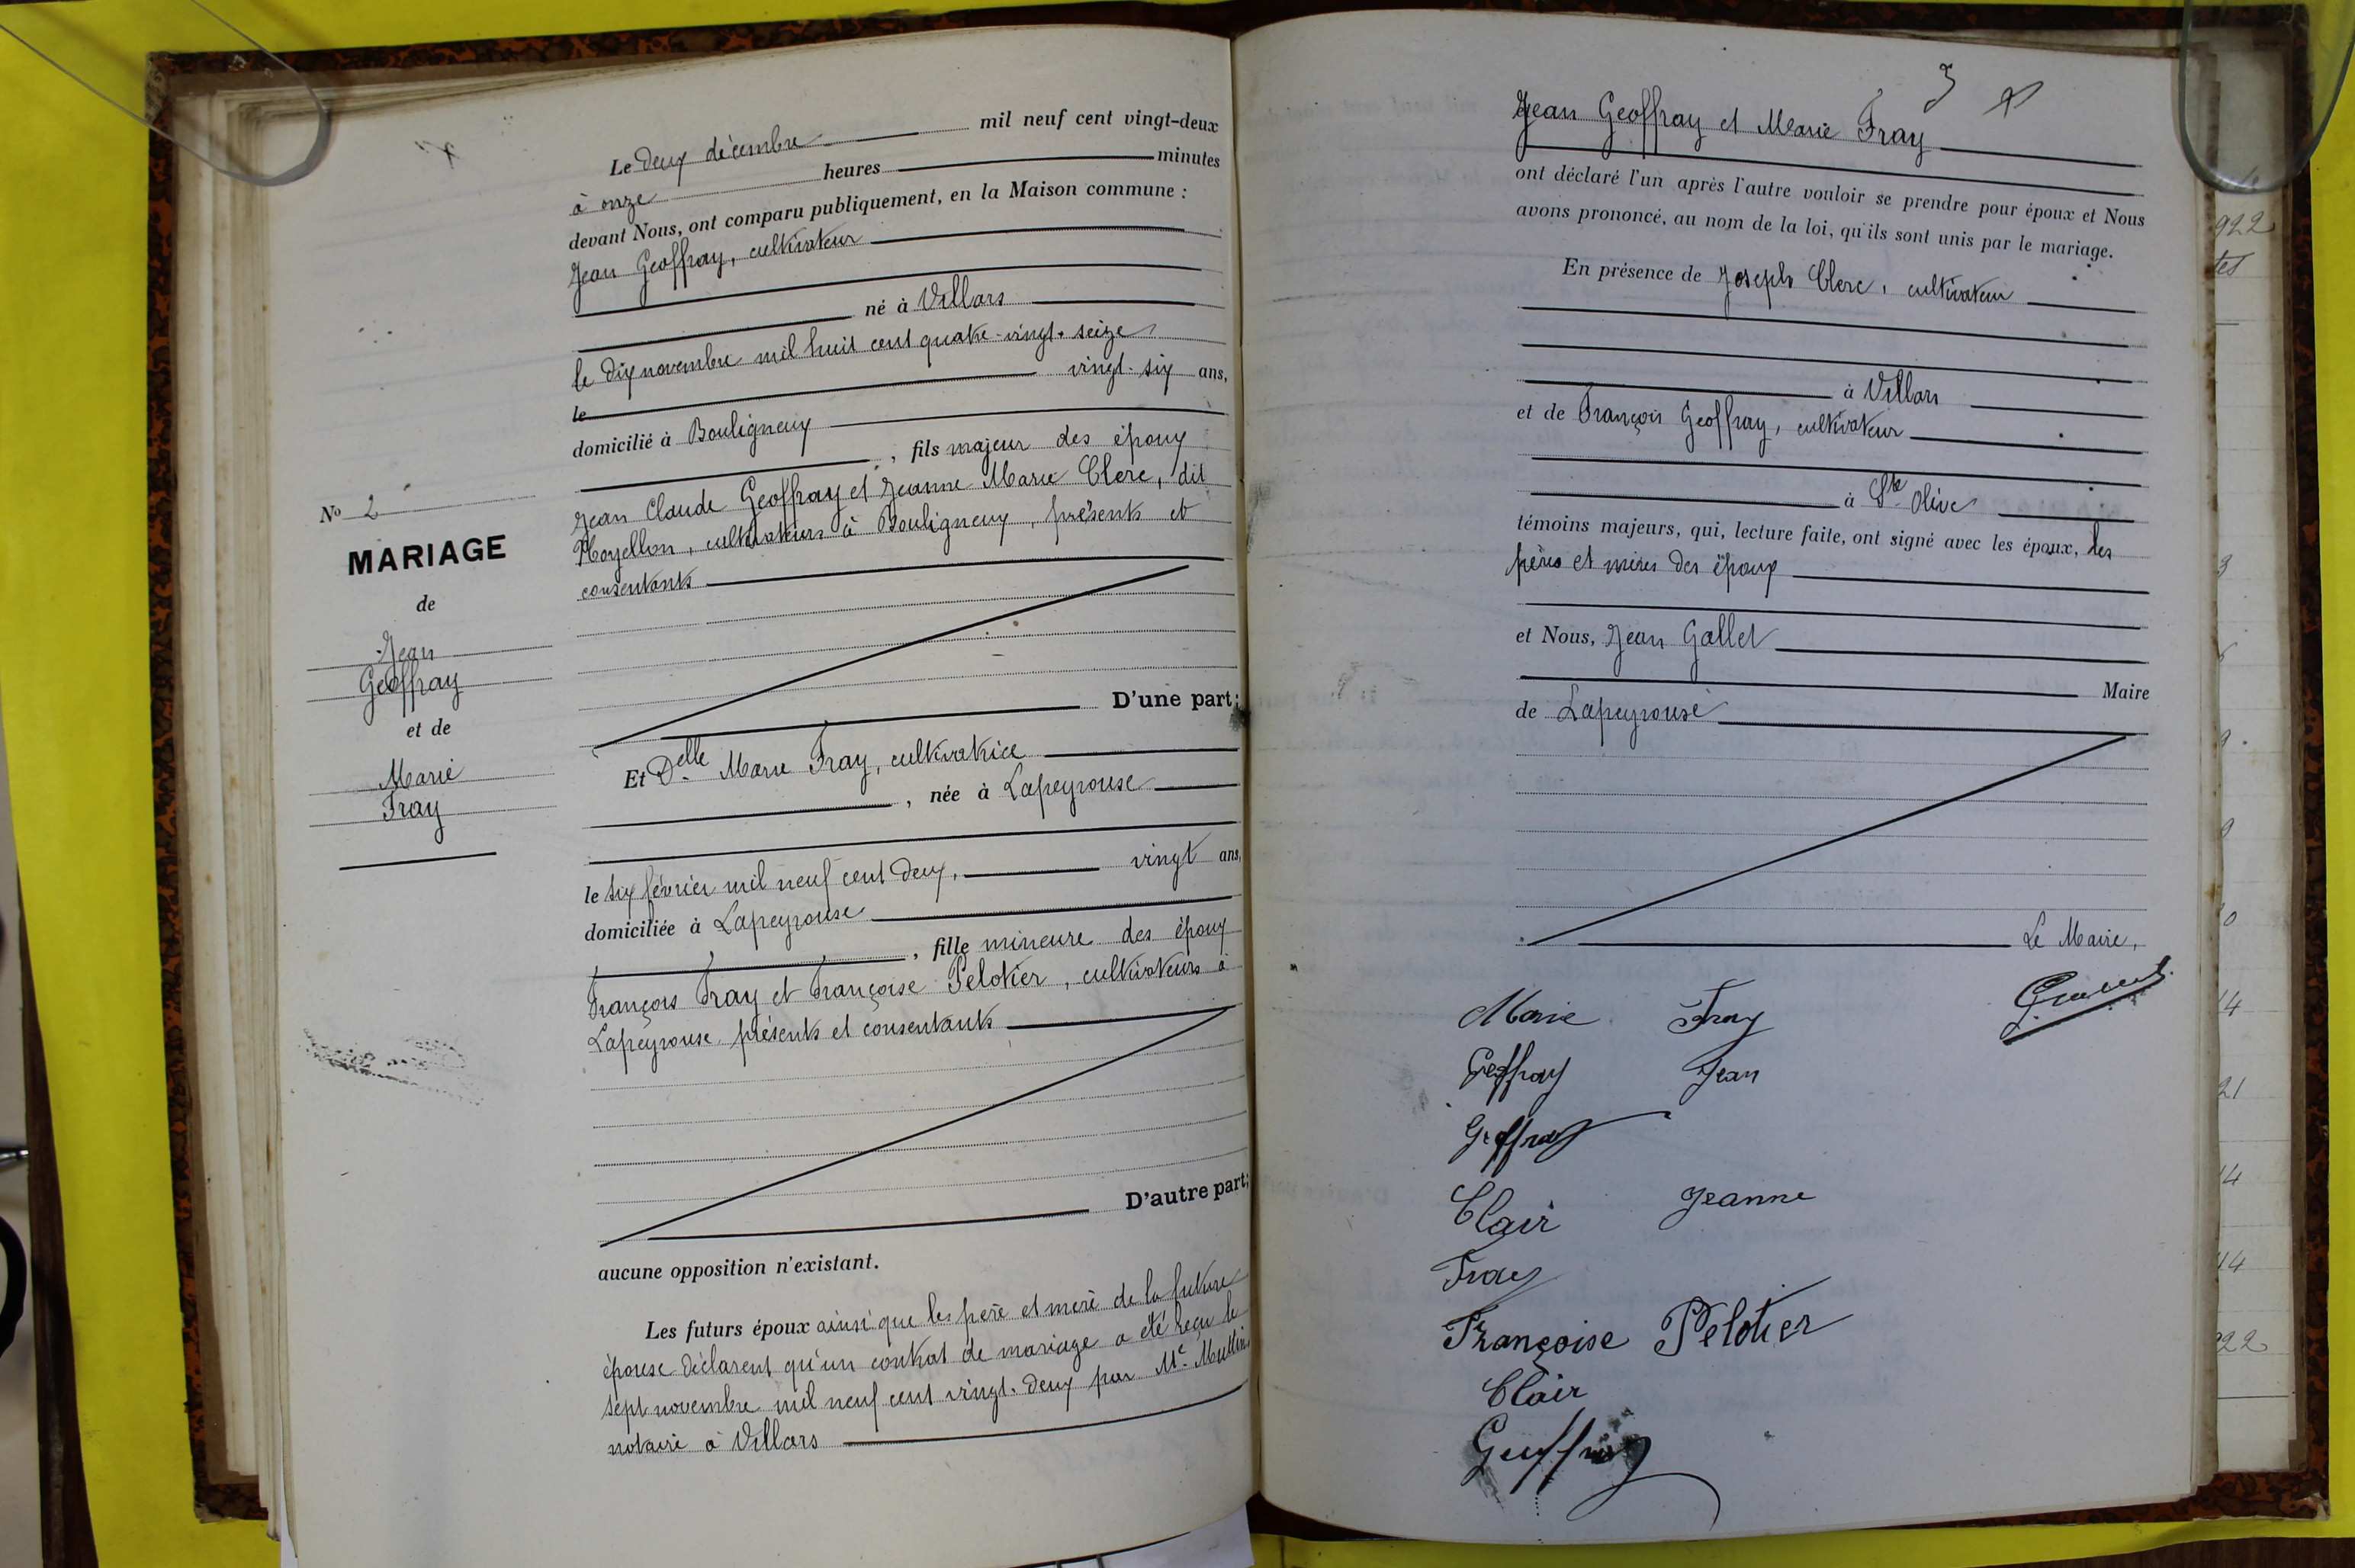 Le deux décembre mil neuf cent vingt-deux
à onze heures minutes
devant Nous, ont comparu publiquement, en la Maison commune :
Jean Geoffray, cultivateur
né à Villars
le dix novembre mil huit cent quatre-vingt-seize
le vingt-six ans,
domicilié à Bouligneux
, fils majeur des époux
Jean Claude Geoffray et Jeanne Marie Clerc, dit
cultivateurs à Bouligneux, présents et
consentants
D'une part;
Nº 2
MARIAGE
de
Jean
Geoffray
et de
Marie
Fray
Et Delle Marie Fray, cultivatrice
, née à Lapeyrouse
le six février mil neuf cent deux, vingt ans,
domiciliée à Lapeyrouse
, fille mineure des époux
François Fray et Françoise Pelotier, cultivateurs à
Lapeyrouse présents et consentants
D'autre part;
aucune opposition n'existant.
Les futurs époux ainsi que les père et mère de la future
épouse déclarent qu'un contrat de mariage a été reçu le
sept novembre mil neuf cent vingt-deux par Me
notaire à Villars
3
Jean Geoffray et Marie Fray
ont déclaré l'un après l'autre vouloir se prendre pour époux et Nous
avons prononcé, au nom de la loi, qu'ils sont unis par le mariage.
En présence de Joseph Clerc, cultivateur
à Villars
et de François Geoffray, cultivateur
à Ste Olive
témoins majeurs, qui, lecture faite, ont signé avec les époux, les
pères et mères des époux
et Nous, Jean Gallet
Maire
de Lapeyrouse
Le Maire,
Marie Fray
Geoffray Jean
Geffray
Clair Jeanne
Fray
Françoise Pelotier
Clair
Geuffray
922
tes
3
9
0
14
21
14
14
922